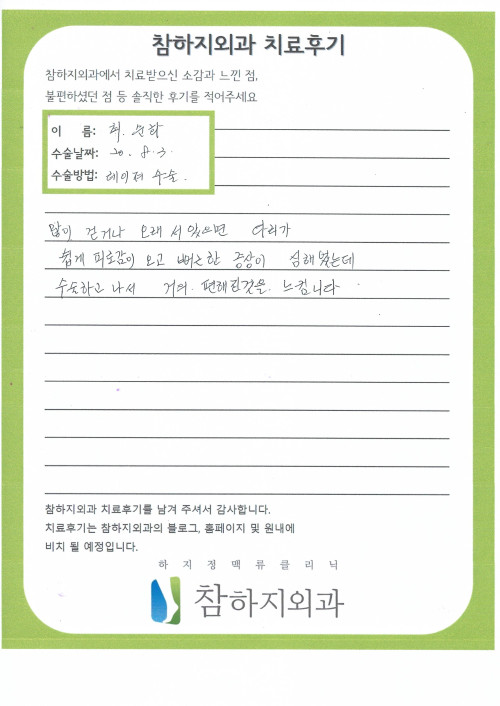 참하지외과 치료후기
참하지외과에서 치료받으신 소감과 느낀 점,
불편하셨던 점 등 솔직한 후기를 적어주세요
이 름: 순학
수술날짜: 20. 8. 3.
수술방법: 레이져 수술.
많이 걷거나 오래 서있으면 다리가
쉽게 피로감이 오고 뻐근한 증상이 심해졌는데
수술하고 나서 거의 편해진것을 느낍니다
참하지외과 치료후기를 남겨 주셔서 감사합니다.
치료후기는 참하지외과의 블로그, 홈페이지 및 원내에
비치 될 예정입니다.
하지정맥류클리닉
참하지외과